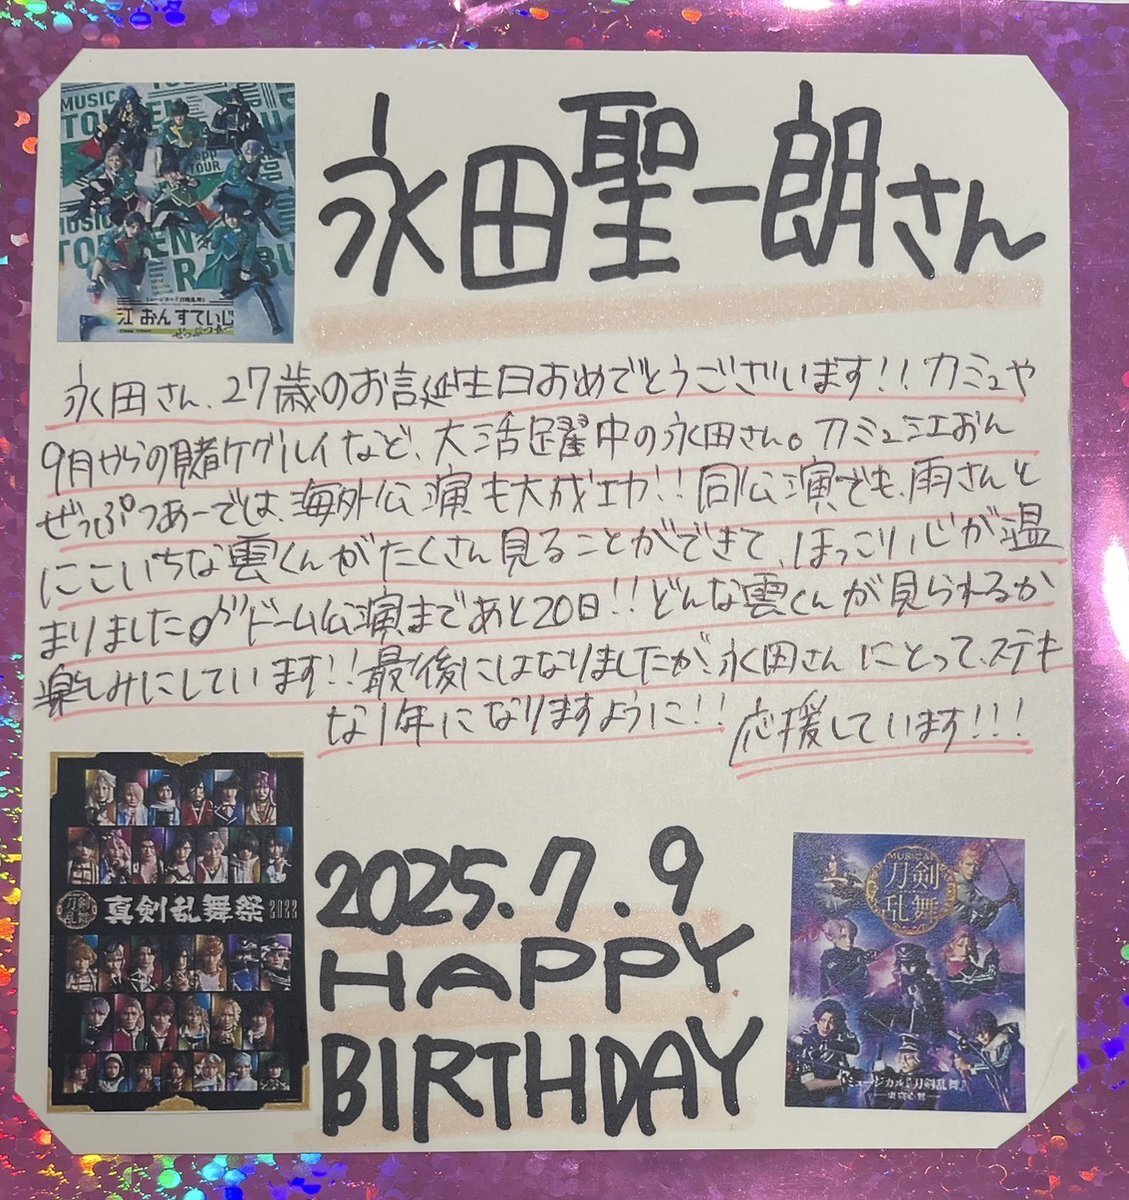 MUSIC
TOUR
MUSIC
江 おん すていじ
ぜっぷつあー
永田聖一朗さん
永田さん、27歳のお誕生日おめでとうございます!! カミュや
9月からの賭ケグルイなど、大活躍中の永田さん。カミュ、江おん
ぜっぷつあーでは、海外公演も大成功!! 同公演でも、雨さんと
にこいちな雲くんがたくさん見ることができて、ほっこり心が温
まりました ドーム公演まであと20日!! どんな雲くんが見られるか
楽しみにしています!! 最後にはなりましたが、永田さんにとって、ステキ
な1年になりますように!! 応援しています!!!
刀剣乱舞 真剣乱舞祭 2022
2025.7.9
HAPPY
BIRTHDAY
MUSICAL
刀剣
乱舞
ミュージカル『刀剣乱舞』